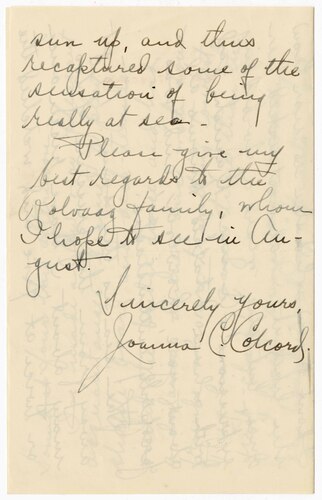 sun up, and thus
recaptured some of the
sensation of being
really at sea.
Please give my
best regards to the
Rolvaag family, whom
I hope to see in Au-
gust.
Sincerely yours,
Joanna C. Colcord.